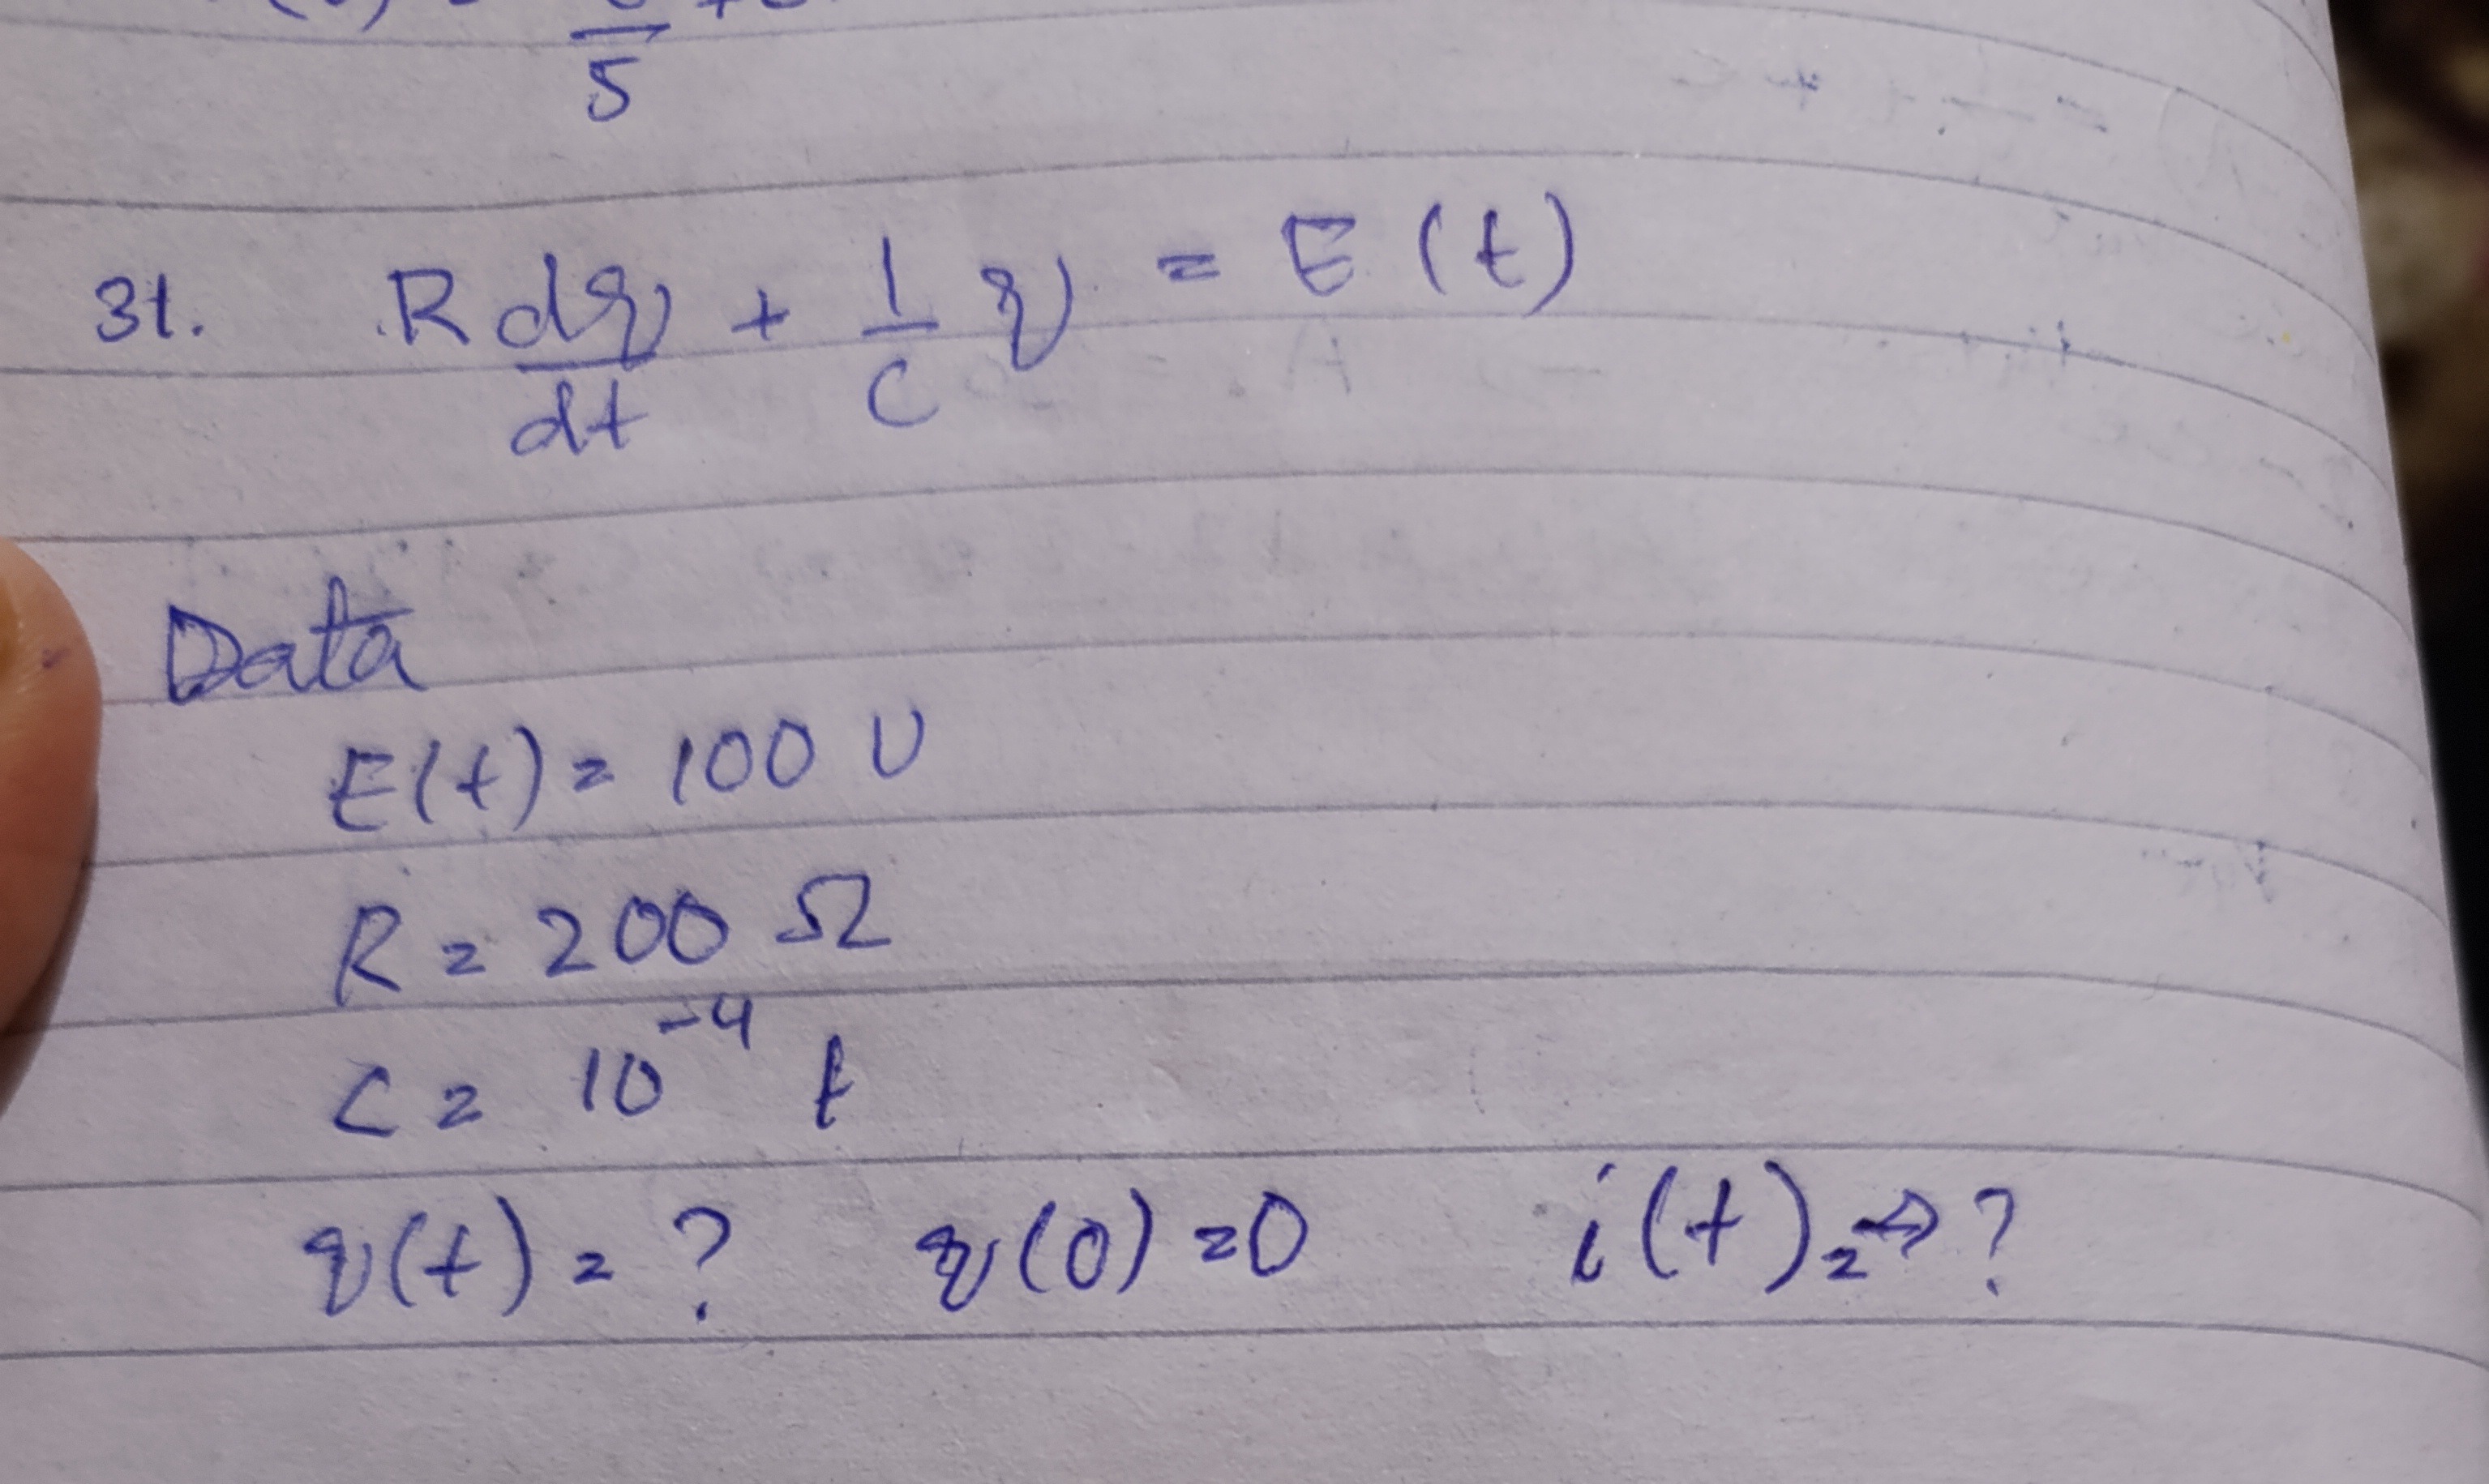 5
31. R dq/dt + 1/C q = E(t)
Data
E(t) = 100 V
R = 200 Ω
C = 10^-4 f
q(t) = ? q(0) = 0 i(t) = → ?